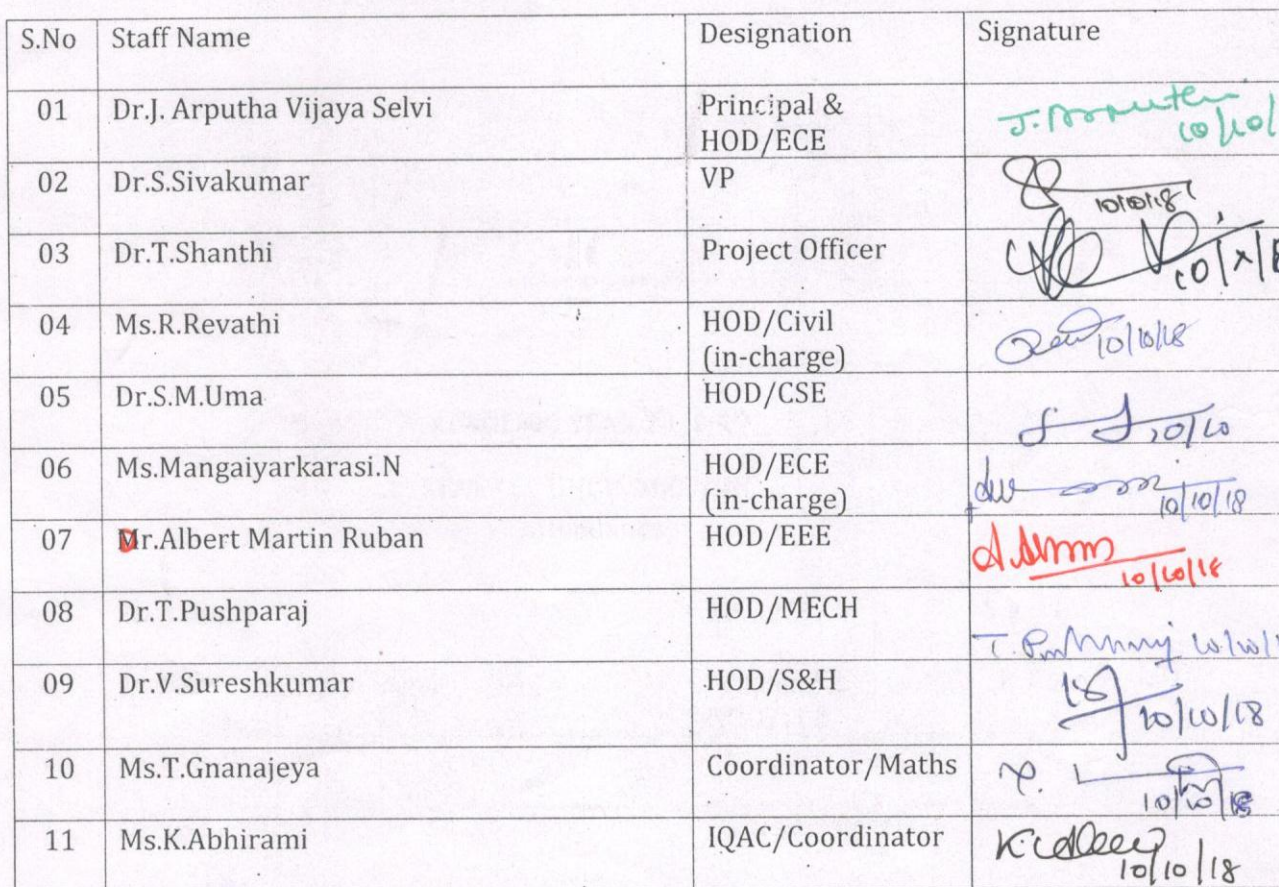 S.No Staff Name Designation Signature
01 Dr.J. Arputha Vijaya Selvi Principal &
HOD/ECE
J. 10/10/
02 Dr.S.Sivakumar VP
10/10/18
03 Dr.T.Shanthi Project Officer
10/X/18
04 Ms.R.Revathi HOD/Civil
(in-charge)
10/10/18
05 Dr.S.M.Uma HOD/CSE
10/10
06 Ms.Mangaiyarkarasi.N HOD/ECE
(in-charge)
10/10/18
07 Dr.Albert Martin Ruban HOD/EEE
10/10/18
08 Dr.T.Pushparaj HOD/MECH
T. 10/10/1
09 Dr.V.Sureshkumar HOD/S&H
10/10/18
10 Ms.T.Gnanajeya Coordinator/Maths
10/10/18
11 Ms.K.Abhirami IQAC/Coordinator
10/10/18